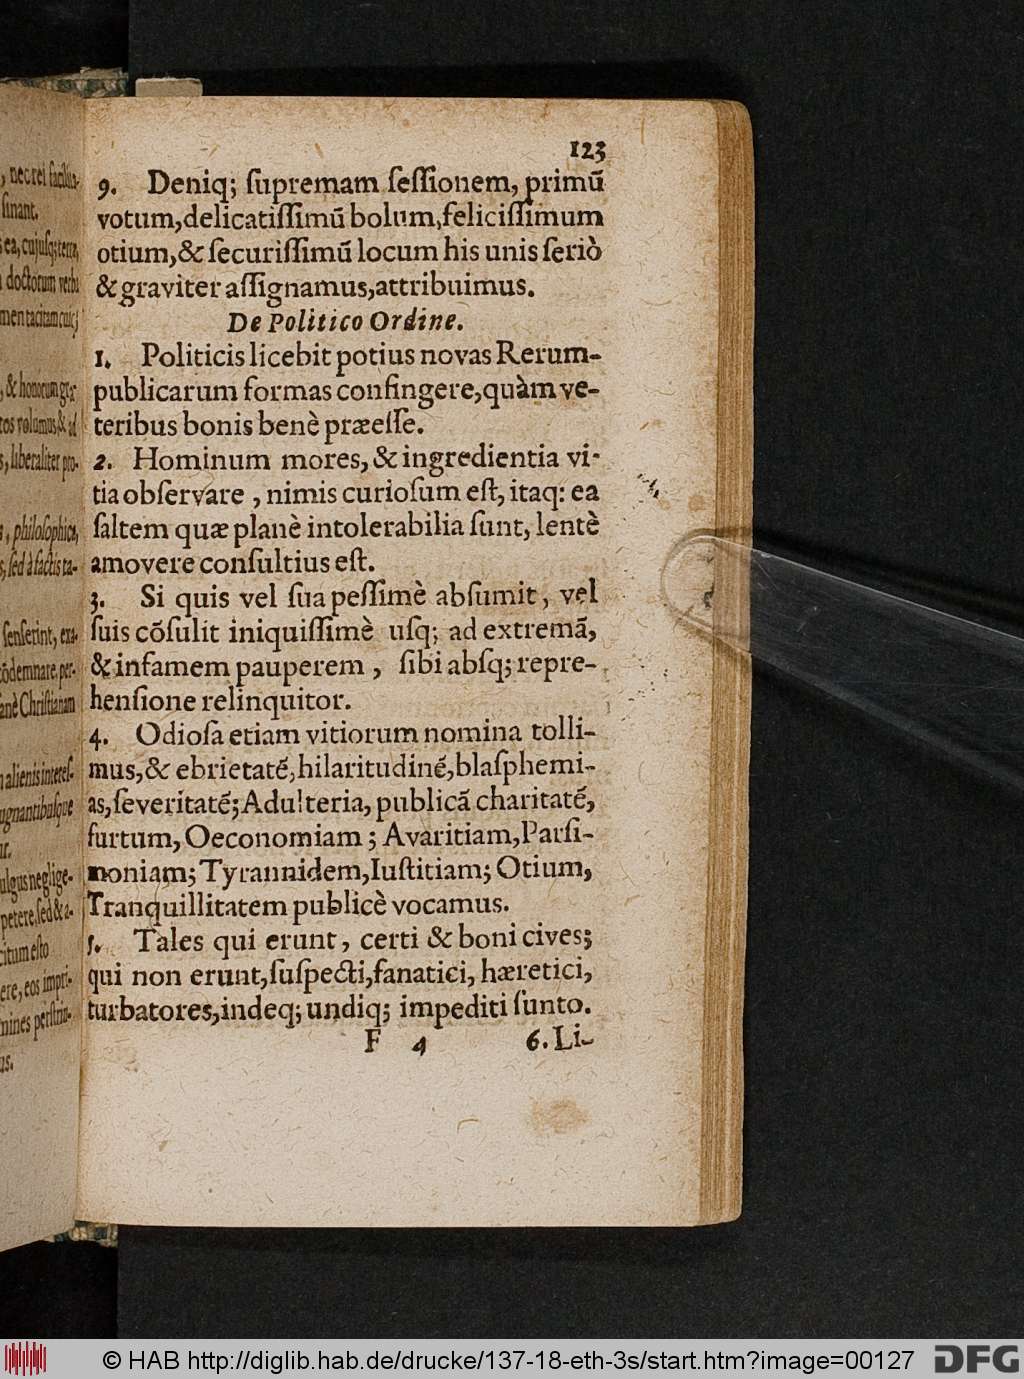 , nec rei facilita-
sinant.
s ea, cujusq; terra,
doctorum verba
men tacitam cuicq;
, & honorum gra-
tos volumus, & ad
s, liberaliter pro-
s, philosophica,
s, sed à factis ta-
senserint, exa-
cõdemnare, per-
sanè Christianam
alienis interes-
ugnantibusque
ur.
ulgus neglige-
petere, sed & a-
citum esto
ere, eos impri-
mines perstrin-
us.
123
9. Deniq; ſupremam ſeſſionem, primũ
votum, delicatiſſimũ bolum, feliciſſimum
otium, & ſecuriſſimũ locum his unis ſeriò
& graviter aſſignamus, attribuimus.
De Politico Ordine.
1. Politicis licebit potius novas Rerum-
publicarum formas confingere, quàm ve-
teribus bonis benè præeſſe.
2. Hominum mores, & ingredientia vi-
tia obſervare , nimis curioſum eſt, itaq: ea
ſaltem quæ planè intolerabilia ſunt, lentè
amovere conſultius eſt.
3. Si quis vel ſua peſſimè abſumit, vel
ſuis cõſulit iniquiſſimè uſq; ad extremã,
& infamem pauperem , ſibi abſq; repre-
henſione relinquitor.
4. Odioſa etiam vitiorum nomina tolli-
mus, & ebrietatẽ, hilaritudinẽ, blaſphemi-
as, ſeveritatẽ; Adulteria, publicã charitatẽ,
furtum, Oeconomiam ; Avaritiam, Parſi-
moniam; Tyrannidem, Iuſtitiam; Otium,
Tranquillitatem publicè vocamus.
5. Tales qui erunt, certi & boni cives;
qui non erunt, ſuſpecti, fanatici, hæretici,
turbatores, indeq; undiq; impediti ſunto.
F 4 6. Li-
© HAB http://diglib.hab.de/drucke/137-18-eth-3s/start.htm?image=00127 DFG